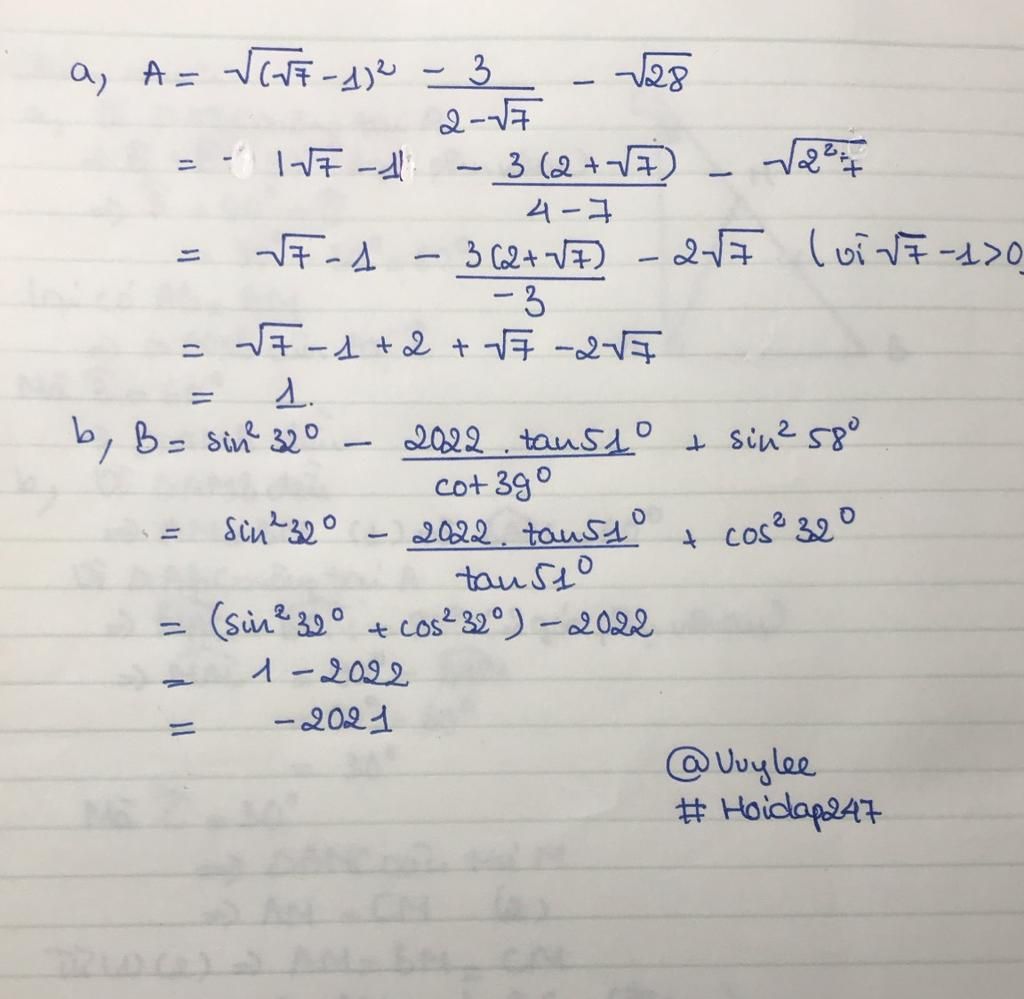 a, A = √(√7 - 1)² - 3/(2 - √7) - √28
= |√7 - 1| - 3(2 + √7)/(4 - 7) - √2².7
= √7 - 1 - 3(2 + √7)/-3 - 2√7 (vì √7 - 1 > 0)
= √7 - 1 + 2 + √7 - 2√7
= 1.
b, B = sin² 32⁰ - 2022 . tan 51⁰/cot 39⁰ + sin² 58⁰
= sin² 32⁰ - 2022 . tan 51⁰/tan 51⁰ + cos² 32⁰
= (sin² 32⁰ + cos² 32⁰) - 2022
= 1 - 2022
= - 2021
@Vuylee
# Hoidap247